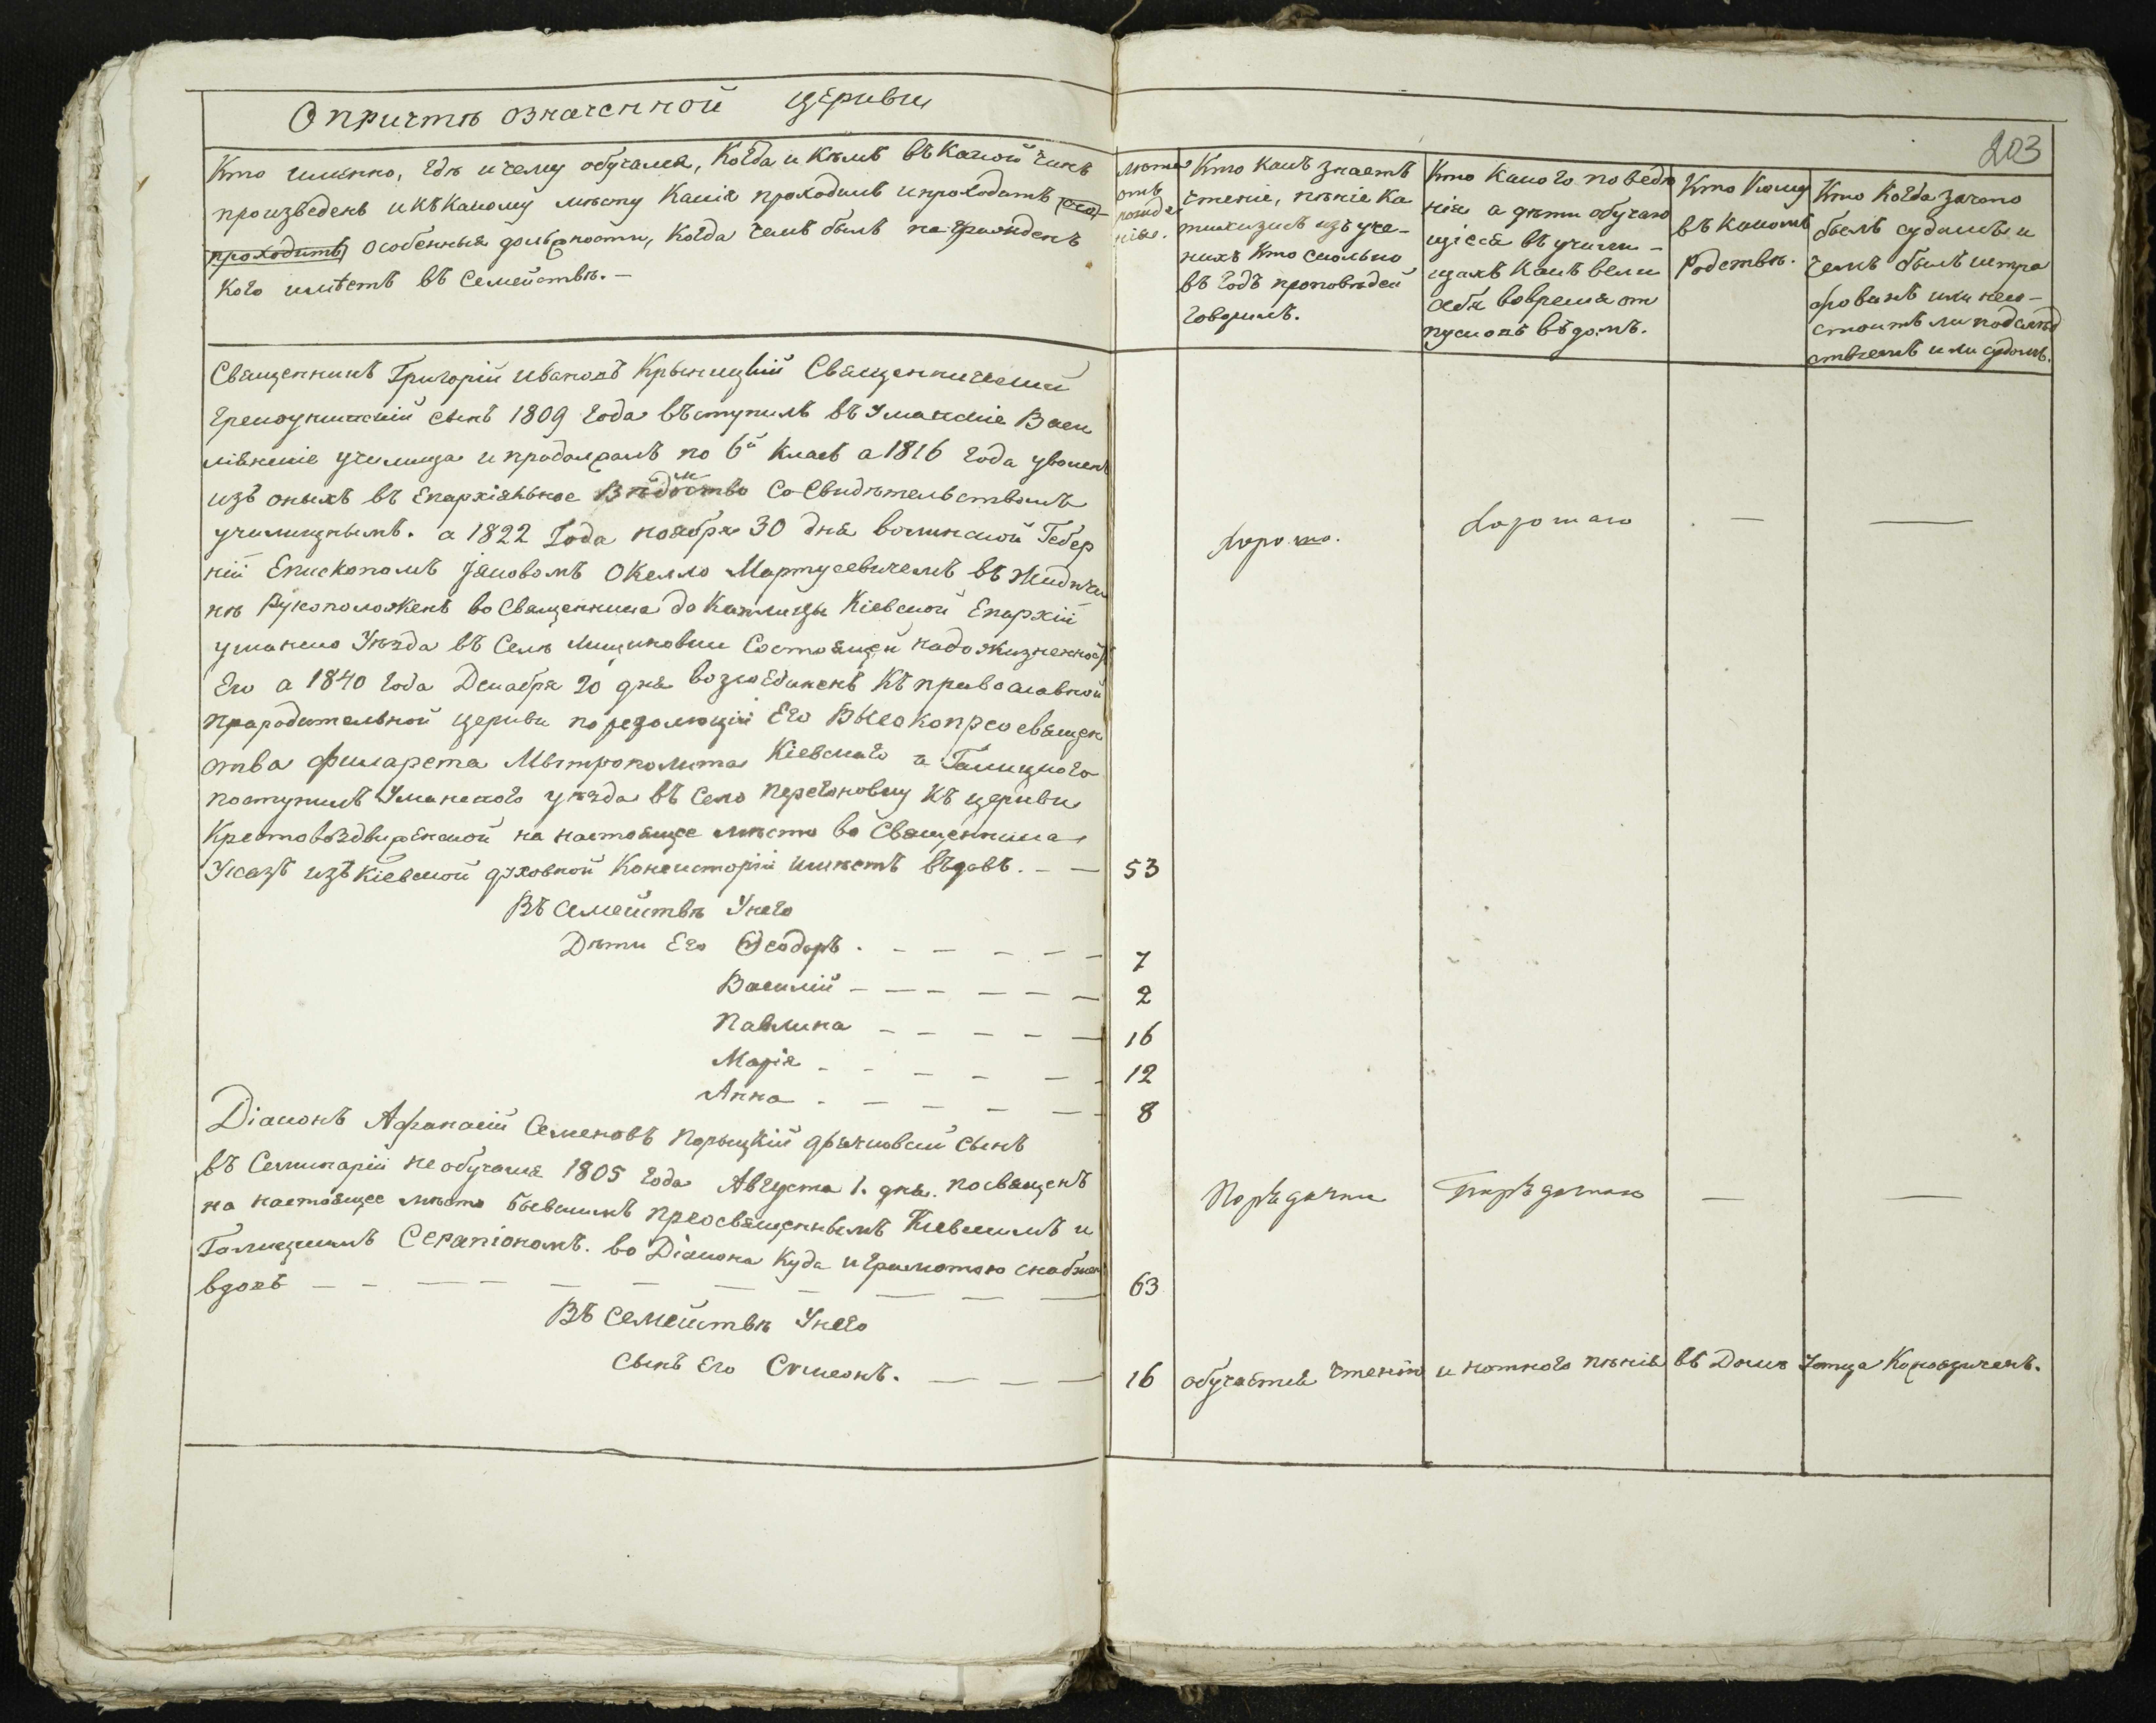 О причтѣ означенной церкви
203
Кто именно, гдѣ и чему обучался, когда и кѣмъ въ какой чинъ
произведенъ и къ какому мѣсту какія проходилъ и проходитъ
проходитъ особенныя должности, когда чемъ былъ награжденъ
кого имѣетъ въ семействѣ. —
Лѣта
отъ
рожде
нія.
Кто какъ знаетъ
чтеніе, пѣніе ка
тихизисъ изъ уче-
ныхъ кто сколько
въ годъ проповѣдей
говорилъ.
Кто какого поведе
нія а дѣти обучаю
щіеся въ учили-
щахъ какъ вели
себя вовремя от
пусковъ въ домъ.
Кто кому
въ какомъ
родствѣ.
Кто когда зачто
былъ судимъ и
чемъ былъ штра
фованъ или не со-
стоитъ ли подслѣд
ствіемъ или судомъ.
Священникъ Григорій Ивановъ Крыницкій Священническій
грекоуніатскій сынъ 1809 года въступилъ въ Уманскіе Васи
ліянскіе училища и продолжалъ по 6й класъ а 1816 года уволенъ
изъ оныхъ въ Епархіяльное Вѣдомство со Свидѣтельствомъ
училищнымъ. а 1822 года ноября 30 дня волинской Губер
ніи Епископомъ Яковомъ Окелло Мартусевичемъ въ Жидичи
нѣ Рукоположенъ во Священника до Каплицы Кіевской Епархіи
уманско Уѣзда въ Селѣ состоящей
Его а 1840 года Декабря 20 дня возсоединенъ къ православной
прародительной церкви по резолюціи Его Высокопреосвящен
ства Филарета Митрополита Кіевскаго и Галицкого
поступилъ Уманского уѣзда въ село Перегоновку къ церкви
Крестовоздвиженской на настоящее мѣсто во Священника
Указъ изъ Кіевской духовной Консисторіи имѣетъ въдовъ. — — 53
Хорошо.
Хорошаго
—
—
Въ Семействѣ У него
Дѣти Его Ѳеодоръ. — — — — — 7
Василій — — — — — — 2
Павлина — — — — — 16
Марія — — — — — 12
Анна — — — — — 8
Діаконъ Афанасій Семеновъ Порыцкій дьячковскій сынъ
въ Семинаріи не обучался 1805 года Августа 1. дня. посвященъ
на настоящее мѣсто бывшимъ преосвященнымъ Кіевскимъ и
Галицкимъ Серапіономъ. во Діакона куда и грамотою снабжен
вдовъ — — — — — — — — — — 63
Порѣдочни
Порѣдочнаго
—
—
Въ Семействѣ У него
Сынъ Его Симеонъ. — — — 16
обучается чтенію и нотного пѣнія въ Домѣ Уотца